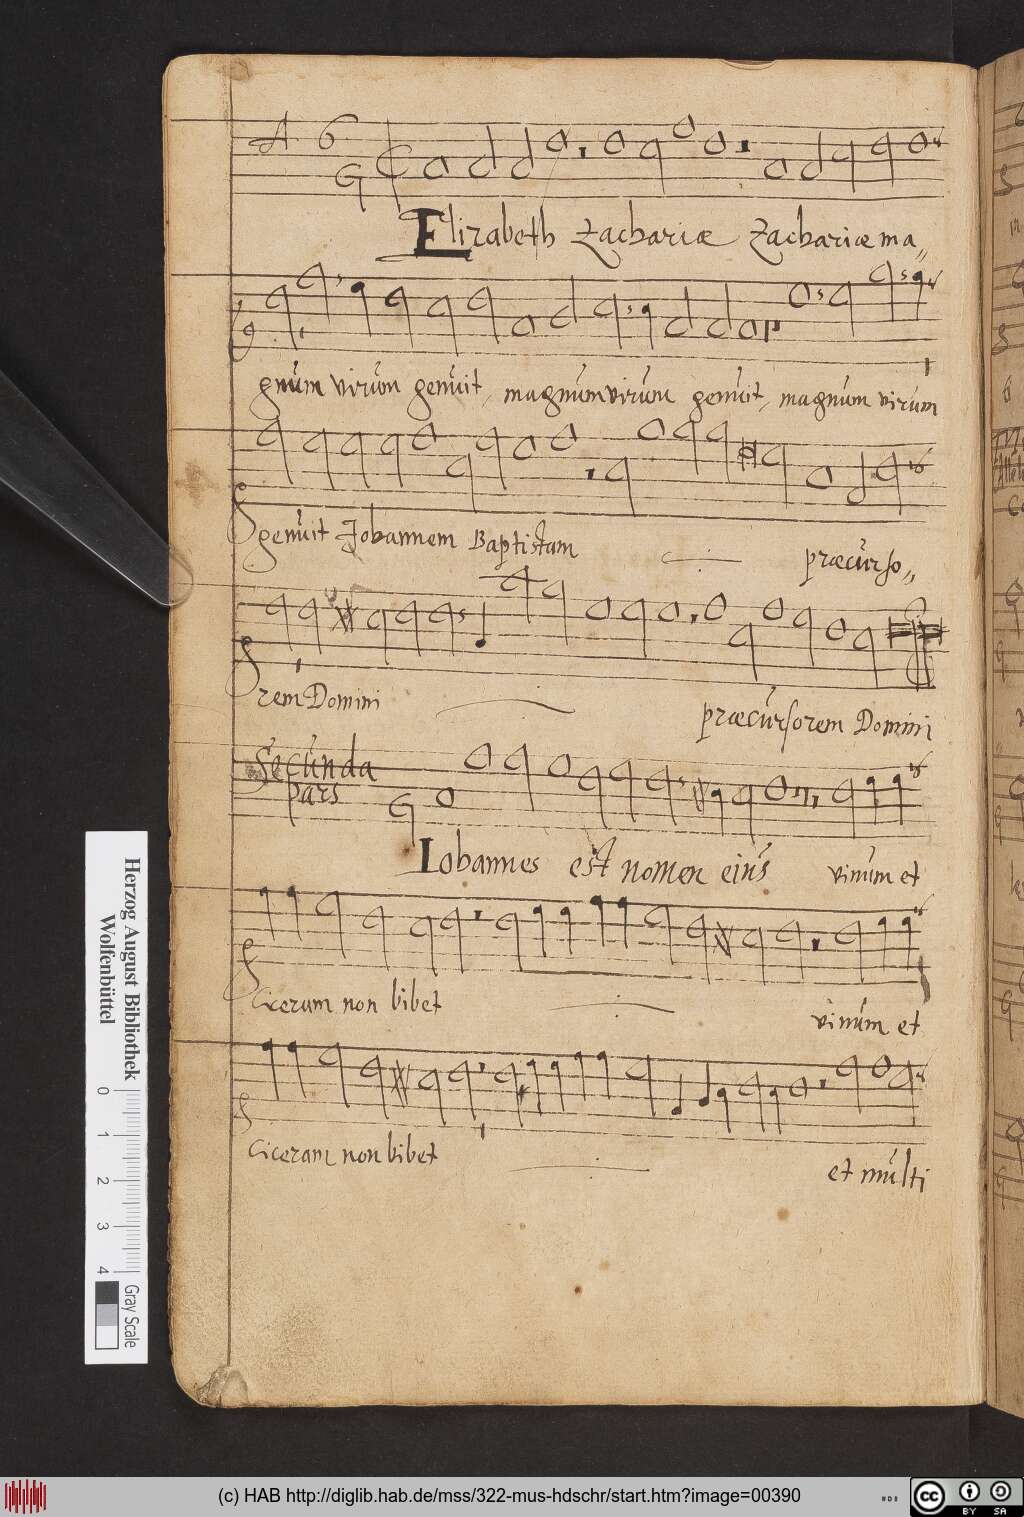 A 6
Elizabeth Zachariæ Zachariæ ma„
gnúm virúm genúit, magnúm virúm genúit, magnúm virúm
genúit Iohannem Baptistam præcúrso„
rem Domini præcúrsorem Domini
Secúnda
pars
Iohannes est nomen eiús vinúm et
Ciceram non bibet vinúm et
Ciceram non bibet et múlti
Herzog August Bibliothek
Wolfenbüttel
0 1 2 3 4
Gray Scale
(c) HAB http://diglib.hab.de/mss/322-mus-hdschr/start.htm?image=00390
cc BY SA